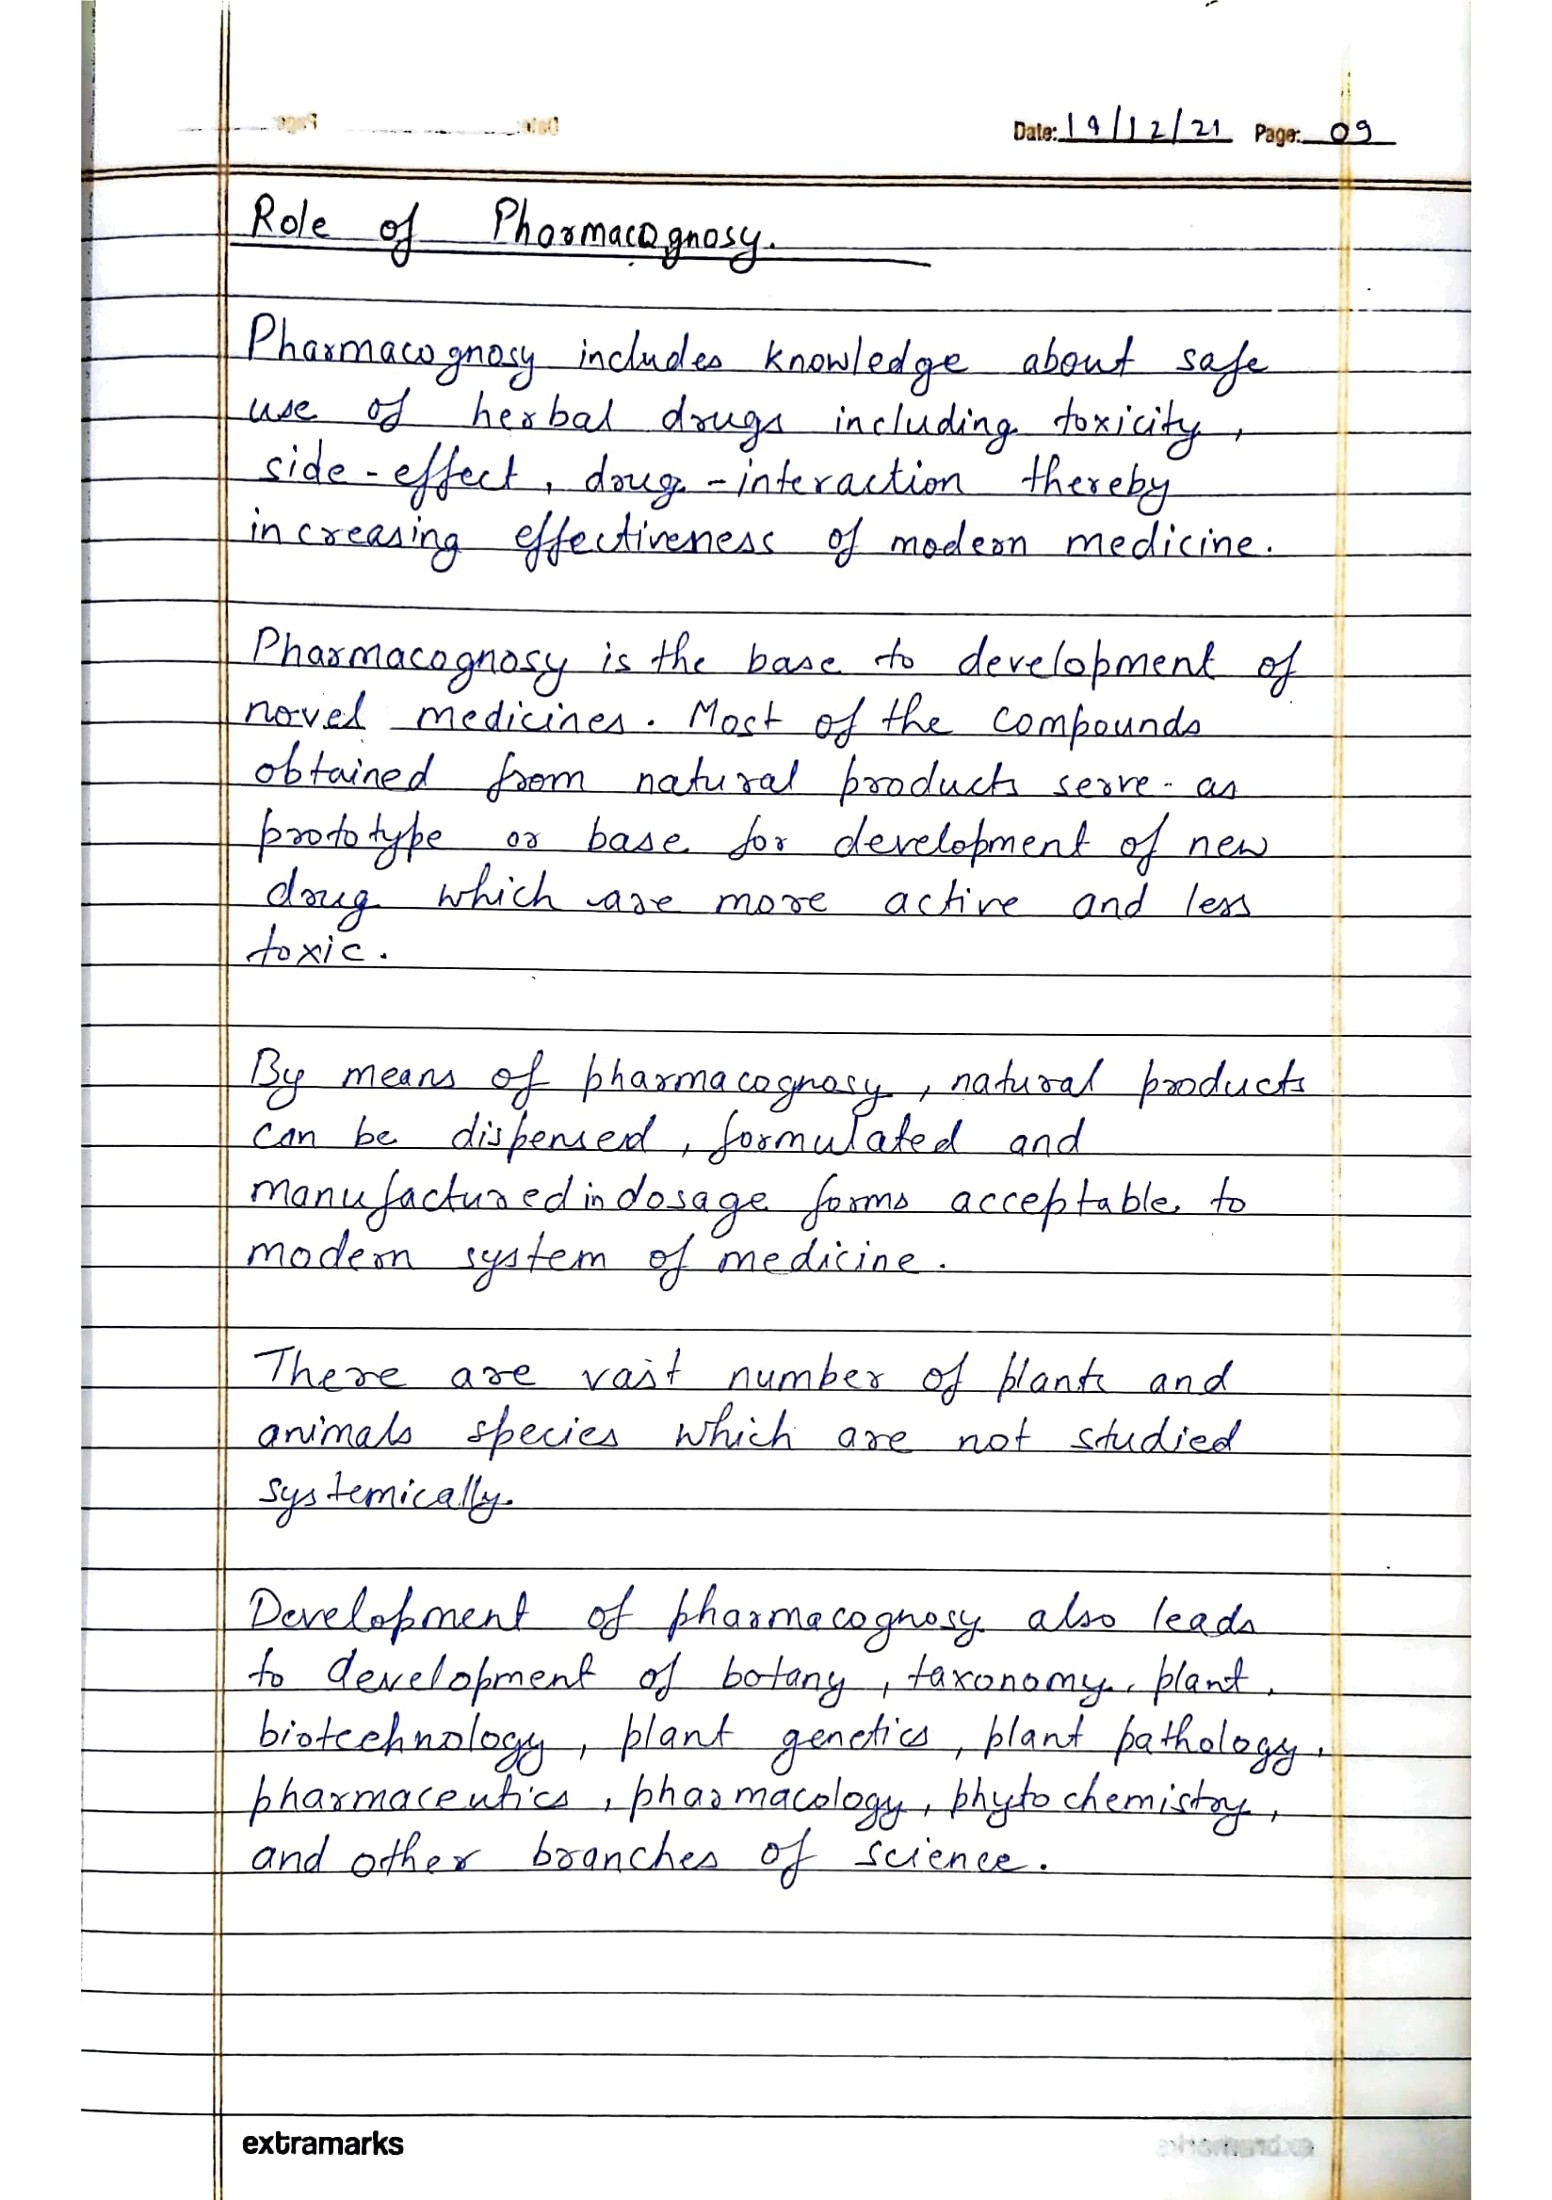 Date: 19/12/21 Page: 09
Role of Pharmacognosy.
Pharmacognosy includes knowledge about safe
use of herbal drugs including toxicity,
side-effect, drug-interaction thereby
increasing effectiveness of modern medicine.
Pharmacognosy is the base to development of
novel medicines. Most of the compounds
obtained from natural products serve as
prototype or base for development of new
drug which are more active and less
toxic.
By means of pharmacognosy, natural products
can be dispensed, formulated and
manufactured in dosage forms acceptable to
modern system of medicine.
There are vast number of plants and
animals species which are not studied
systemically.
Development of pharmacognosy also leads
to development of botany, taxonomy, plant
biotechnology, plant genetics, plant pathology,
pharmaceutics, pharmacology, phytochemistry,
and other branches of science.
extramarks